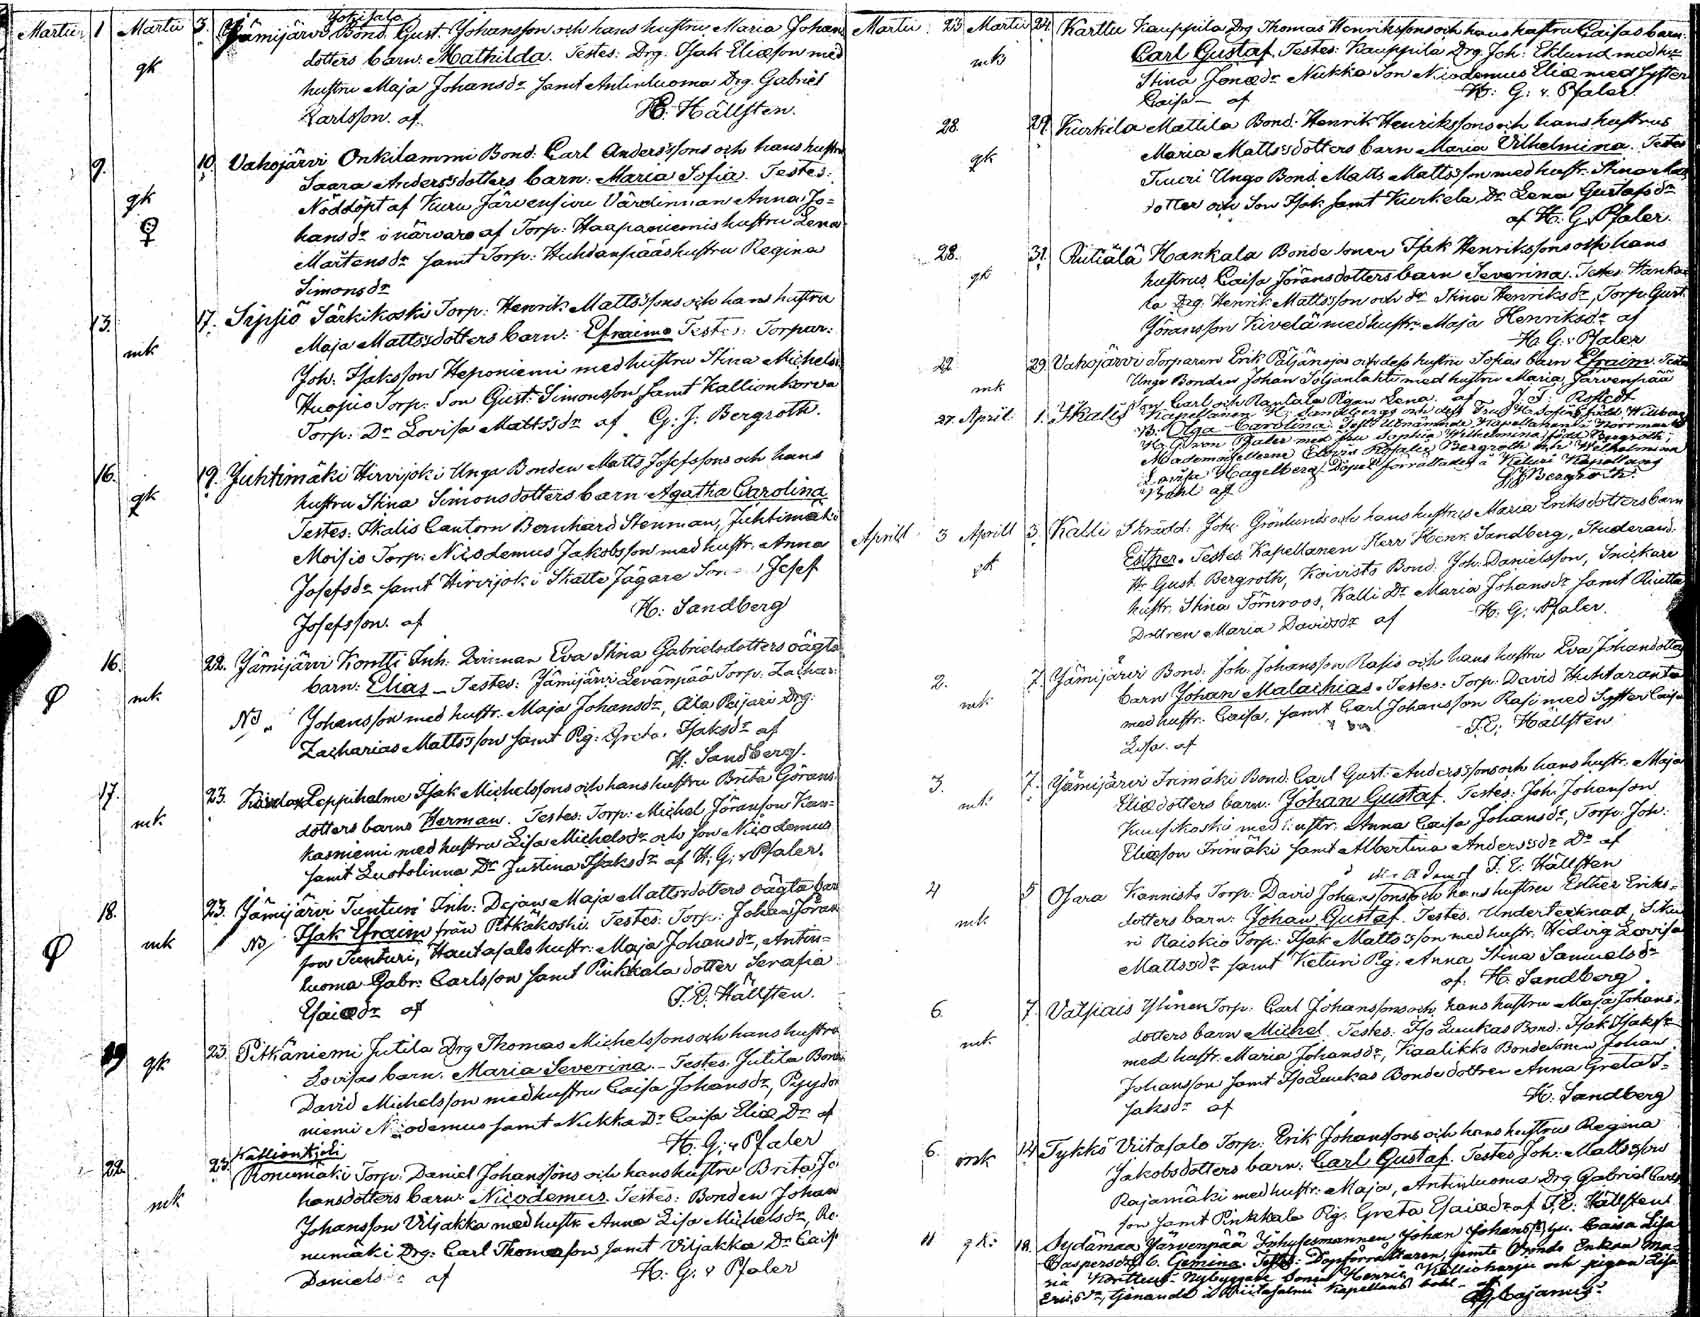 Martii 1 Martii 3. Yötisalo
Jämijärvi Bond. Gust. Johansson och hans hustru Maria Johans
gk dotters barn: Mathilda. Testes: Drg. Isak Eliæson med
hustru Maja Johansdr samt Antinluoma Drg Gabriel
Karlsson. af H. Hällsten.
9. 10. Vahojärvi Onkilammi Bond. Carl Anderssons och hans hustru
Saara Andersdotters barn: Maria Sofia. Testes:
gk Nöddöpt af Kuru Järvensivu Värdinnan Anna Jo=
♀ hansdr i närvaro af Torp: Haapaniemis hustru Lena
Mårtensdr samt Torp: Huhdanpääs hustru Regina
Simonsdr
13. 17. Sipsiö Särkikoski Torp: Henrik Mattssons och hans hustru
mk Maja Mattsdotters barn: Efraim Testes: Torpar:
Joh: Isaksson Heponiemi med hustru Stina Michels
Huopio Torp: Son Gust: Simonsson samt Kallionkorva
Torp: Dr Lovisa Mattsdr af G. J. Bergroth.
16. 19. Juhtimäki Hirvijoki Unga Bonden Matts Josefssons och hans
gk hustru Stina Simonsdotters barn Agatha Carolina
Testes: Ikalis Cantorn Bernhard Stenman, Juhtimäki
Moisio Torp: Nicodemus Jakobsson med hustr: Anna
Josefsdr samt Hirvijoki Skatte Jägare Son Josef
Josefsson. af H: Sandberg
16. 22. Jämijärvi Kontti Inh: Qvinnan Eva Stina Gabrielsdotters oägta
Φ mk barn: Elias – Testes: Jämijärvi Levämpää Torp. Zachar:
NB Johansson med hustr. Maja Johansdr, Ala Peijari Drg:
Zacharias Mattsson samt Pig: Greta Isaksdr af
H. Sandberg.
17. 23. Peppiholme Isak Michelssons och hans hustru Brita Görans
mk dotters barn: Herman. Testes: Torp: Michel Jöransson Kan=
kasniemi med hustru Lisa Michelsdr och son Nicodemus
samt Luotolinna Dr Justina Isaksdr af H: G: v Pfaler.
18. 23. Jämijärvi Tunturi Inh: Dejan Maja Mattsdotters oägta bar
Φ mk NB Isak Efraim från Pitkäkoski. Testes: Torp: Johan Jörans
son Tunturi, Hautasals hustr: Maja Johansdr, Antin=
luoma Gabr: Carlsson samt Pinkkala dotter Serafia
Esaiædr af J. E. Hällsten.
19 gk 23. Pitkäniemi Jutila Drg Thomas Michelssons och hans hustru
Lovisas barn: Maria Severina. – Testes: Jutila Bond
David Michelsson med hustru Caisa Johansdr, Pyydön
niemi Nicodemus samt Nukka Dr Caisa Eliæ Dr af
H. G: v Pfaler
22. 23. Kallionkieli
mk Ronumäki Torp: Daniel Johanssons och hans hustru Brita Jo
hansdotters barn: Nicodemus. Testes: Bonden Johan
Johansson Viljakka med hustr Anna Lisa Michelsdr, Ro
numäki Drg: Carl Thomasson samt Viljakka Dr Caisa
Daniels af H: G: v Pfaler
Martii 23 Martii 24. Karttu Kauppila Drg Thomas Henrikssons och hans hustru Caisas barn:
mk Carl Gustaf. Testes: Kauppila Drg Joh: Eklund med hu=
Stina Jonædr Nukka Son Nicodemus Eliæ med syster
Caisa – af H: G: v. Pfaler.
28. 29. Kurkila Mattila Bond: Henrik Henrikssons och hans hustrus
gk Maria Mattsdotters barn Maria Vilhelmina. Testes
Tuuri Unga Bond. Matts Mattsson med hustr. Stina Mat
dotter och Son Isak samt Kurkela Dr Lena Gustafsdr
af H. G. Pfaler.
28. 31. Riitiälä Hankala Bonde Sonen Isak Henrikssons och hans
gk hustrus Caisa Jöransdotters barn Severina. Testes Hanka
la Drg. Henrik Mattsson och dr Stina Henriksdr, Torp: Gust.
Jöransson Kivelä med hustr: Maja Henriksdr af
H. G: v Pfaler
22. 29. Vahojärvi Torparen Erik Päijänojas och dess hustru Sofias barn Efraim. Testes
mk Unga Bonden Johan Poljanlahti med hustru Maria, Järvenpää
son Carl och Rantala Pigan Lena. af J. F. Roslöf
27. April 1. Ikalis Kapellanen H. Sandbergs och dess Fru H. Sofias född Widberg
B. Olga Carolina. Test: Utnämnde Kapellanen i Norrmark
H. Göran Pfaler med fru Sophia Wilhelmina född Bergroth,
Mademoisellerne Edvin Rosalie Bergroth och Wilhelmina
Lovisa Hagelberg. Döpelseförrättades å Keturi Kapellans
Bohl af G J Bergroth.
Aprill 3 Aprill 3. Kalli Skrädd. Joh: Grönlunds och hans hustrus Maria Eriksdotters barn
gk Esther. Testes. Kapellanen Herr Henr. Sandberg, Studerand.
Hr Gust. Bergroth, Koivisto Bond Joh: Danielsson, Snickare
hustr. Stina Törnroos, Kalli Dr Maria Johansdr samt Riutta
Dottren Maria Davidsdr af H. G. Pfaler.
2. 7. Jämijärvi Bond: Joh: Johansson Rasis och hans hustru Eva Johansdotters
mk barn Johan Malachias. Testes: Torp: David Huhtaranta
med hustr: Caisa, samt Carl Johansson Rasi med syster Caisa
Lisa. af J. E. Hällsten
3. 7. Jämijärvi Trimäki Bond. Carl Gust: Anderssons och hans hustr. Maja
mk Eliædotters barn: Johan Gustaf. Testes: Joh: Johansson
Kuusikoski med hustr: Anna Caisa Johansdr, Torp: Joh:
Eliæson Trimäki samt Albertina Andersdr Dr af
J. E. Hällsten
4 5 Osara Kannisto Torp: David Johanssons och hans hustru Esther Eriks=
mk dotters barn: Johan Gustaf. Testes. Undertecknad,
Raiskio Torp: Isak Mattsson med hustr. Hedvig Lovisa
Mattsdr samt Keturi Pig: Anna Stina Samuelsdr
af H. Sandberg
6. 7. Vatsiais Ylinen Torp: Carl Johanssons och hans hustru Maja Johans=
mk dotters barn Michel. Testes: Iso Luukas Bond: Isak Isaksson
med hustr. Maria Johansdr, Kaalikko Bondesonen Johan
Johansson samt Iso Luukas Bonde dottren Anna Greta I=
saksdr af H. Sandberg
6. 14. Tykkö Viitasalo Torp: Erik Johanssons och hans hustrus Regina
msk Jakobsdotters barn. Carl Gustaf. Testes. Joh: Mattsson
Rajamäki med hustr: Maja, Antinluoma Drg Gabriel Carls
son samt Pinkkala Pig: Greta Esaiædr af J. E. Hällsten
11 gk: 12. Sydämaa Järvenpää Inhysesmannen Johan Johanss: Hu. Caisa Lisa
Caspersdrs b. Gemina. Testes: Dopförrättaren, jemte Enkan Ma=
ria Nybyggare Sonen Henric Kallioharju och pigan Lisa
Ericsdr, tjenande å Viitasalmi Kapellans bohl – af
Cajanus.